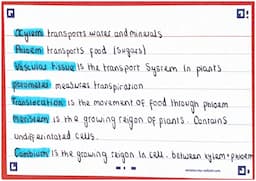 Xylem transports water and minerals
Phloem transports food (sugars)
Vascular tissue is the transport System in plants
potometer measures transpiration
Translocation is the movement of food through phloem
Meristem is the growing reigon of plants. Contains
undifferentiated cells.
Cambium is the growing reigon in cell. between xylem + phloem